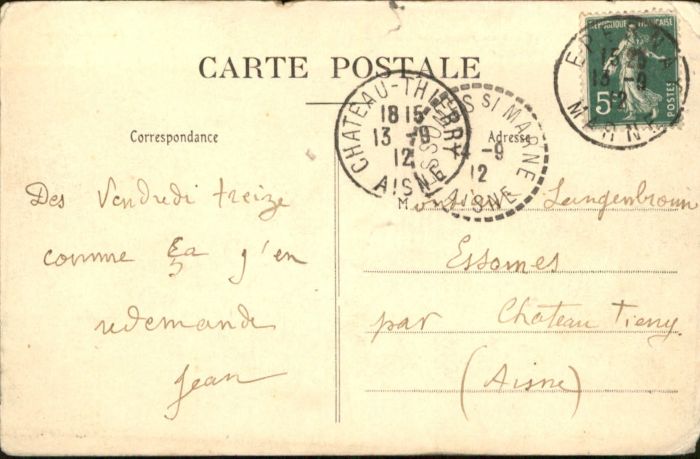 CARTE POSTALE
Correspondance
Adresse
RÉPUBLIQUE FRANÇAISE
5c
POSTES
15
13 -9
12
MARNE
CHATEAU-THIERRY
18 15
13 -9
12
AISNE
ESSOMES S/ MARNE
-9
12
AISNE
Des Vendredi treize
comme ça j'en
redemande
Jean
Monsieur Langenbronn
Essomes
par Chateau Tierry
(Aisne)